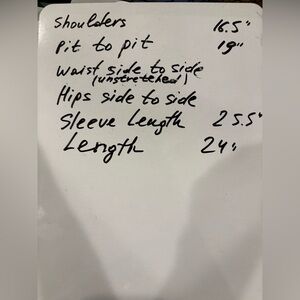 Shoulders 16.5"
Pit to pit 19"
Waist side to side
(unstretched)
Hips side to side
Sleeve Length 25.5"
Length 24"